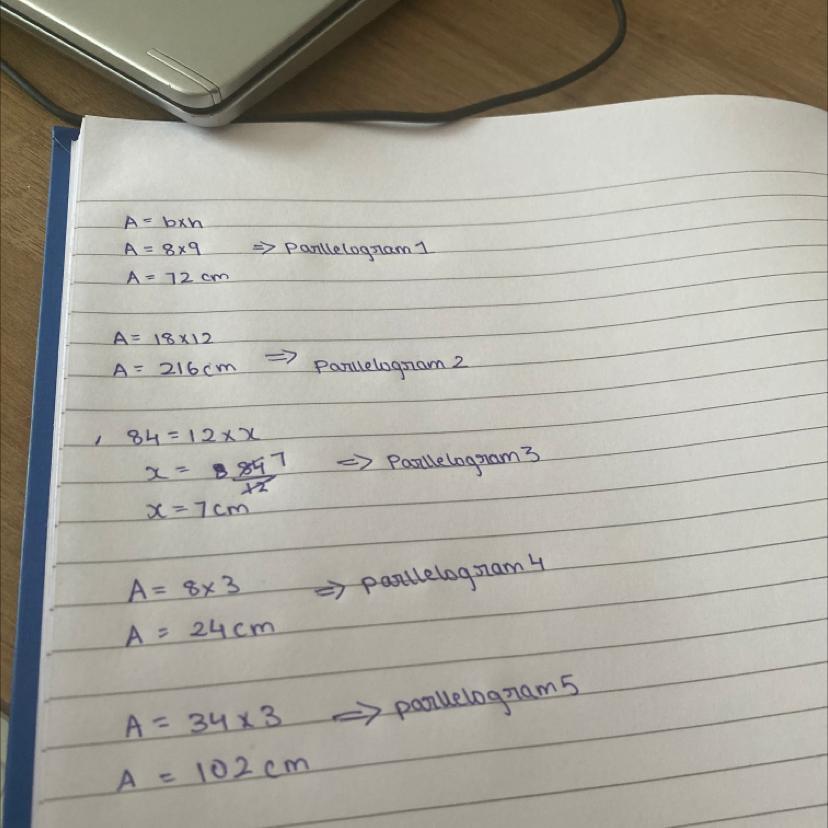 A = b×h
A = 8×9 ⇒ Parllelogram 1
A = 72 cm
A = 18×12
A = 216 cm ⇒ Parllelogram 2
84 = 12 × x
x = 84 7 ⇒ Parllelogram 3
12
x = 7 cm
A = 8×3 ⇒ parllelogram 4
A = 24 cm
A = 34 × 3 ⇒ parllelogram 5
A = 102 cm